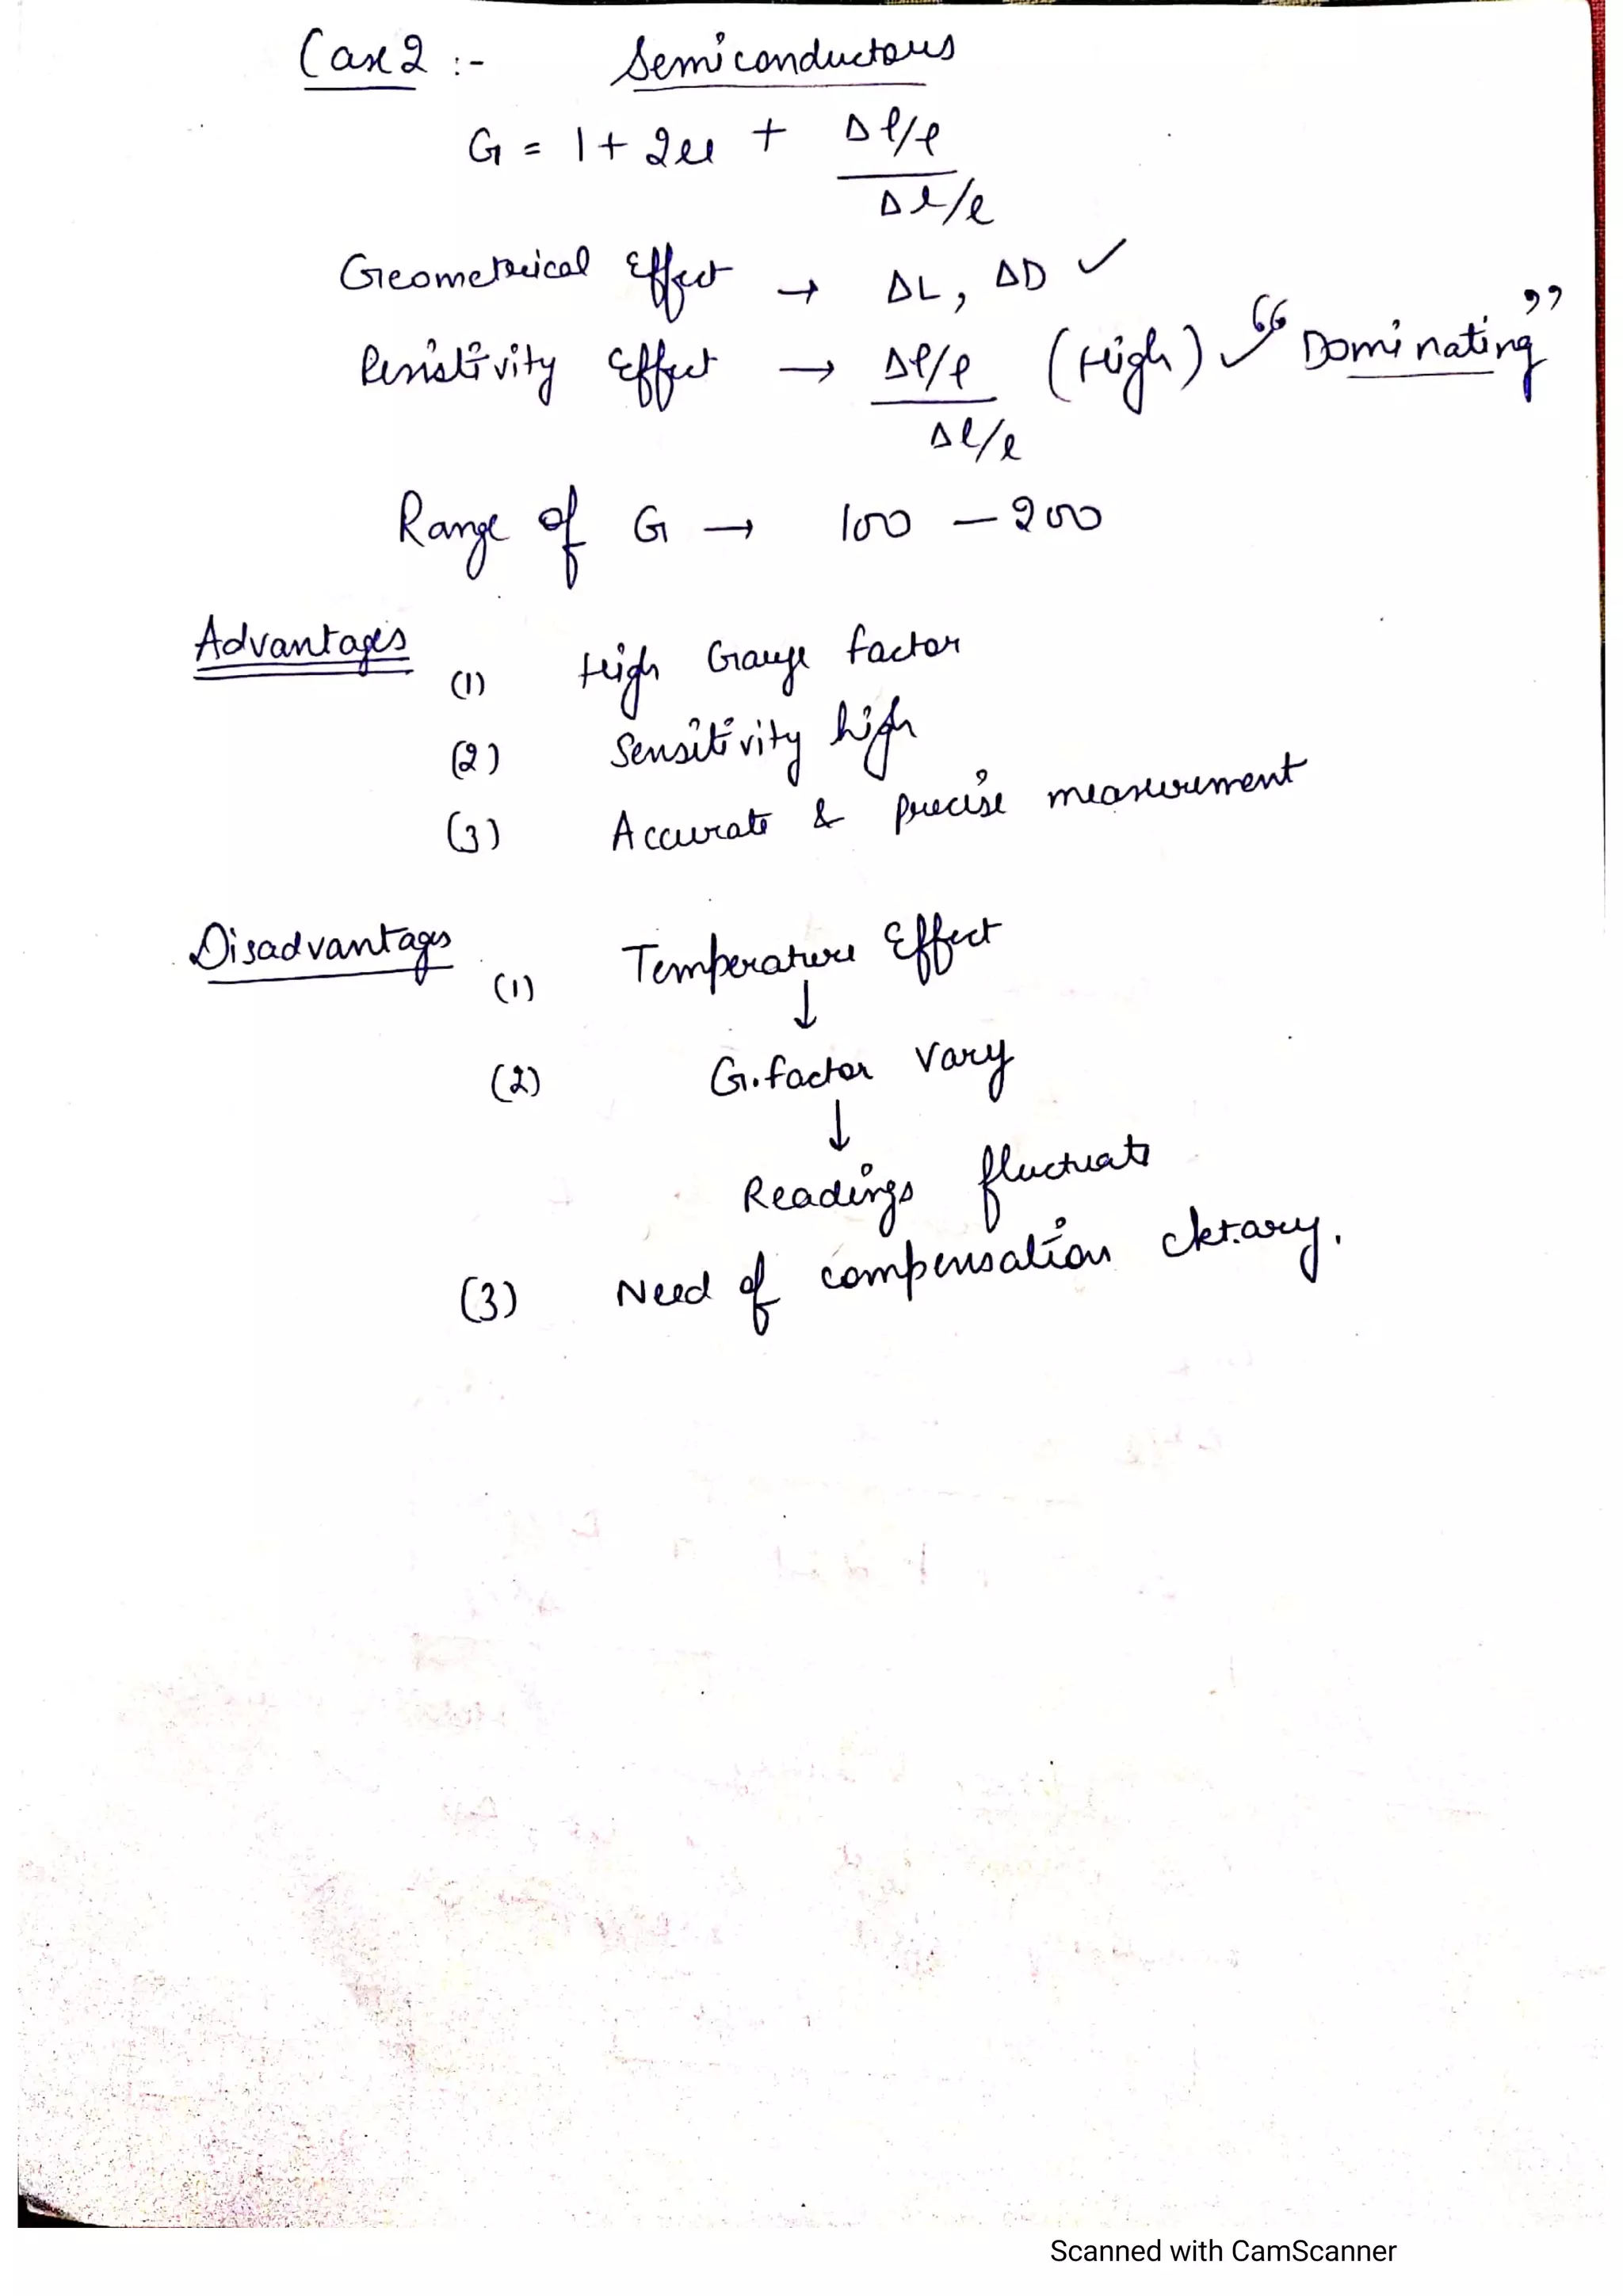 Case 2 :- Semiconductors
G = 1 + 2μ + Δρ/ρ
Δl/l
Geometrical Effect → ΔL, ΔD ✓
Resistivity Effect → Δρ/ρ (High) ✓ “Dominating”
Δl/l
Range of G → 100 – 200
Advantages
(1) High Gauge factor
(2) Sensitivity high
(3) Accurate & precise measurement
Disadvantages
(1) Temperature Effect
↓
(2) G.factor vary
↓
Readings fluctuate
(3) Need of compensation cktary.
Scanned with CamScanner